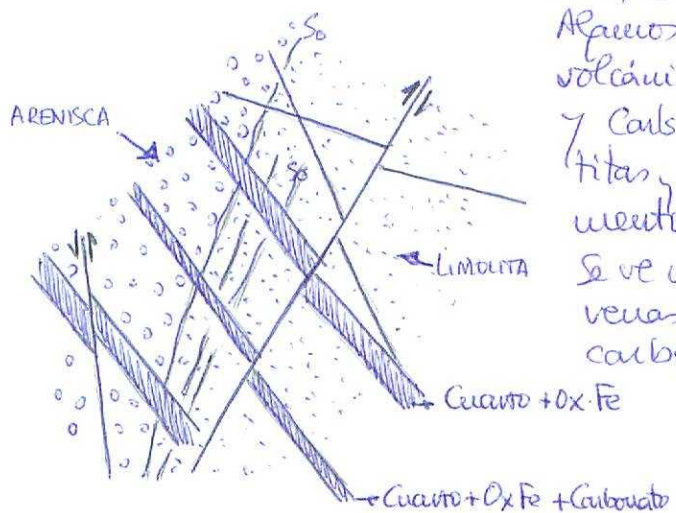 So
ARENISCA
So
LIMOLITA
Cuarzo + Ox. Fe
Cuarzo + Ox Fe + Carbonato
Algunos
volcáni
y Carb
titas y
mento
Se ve
venas
carbo